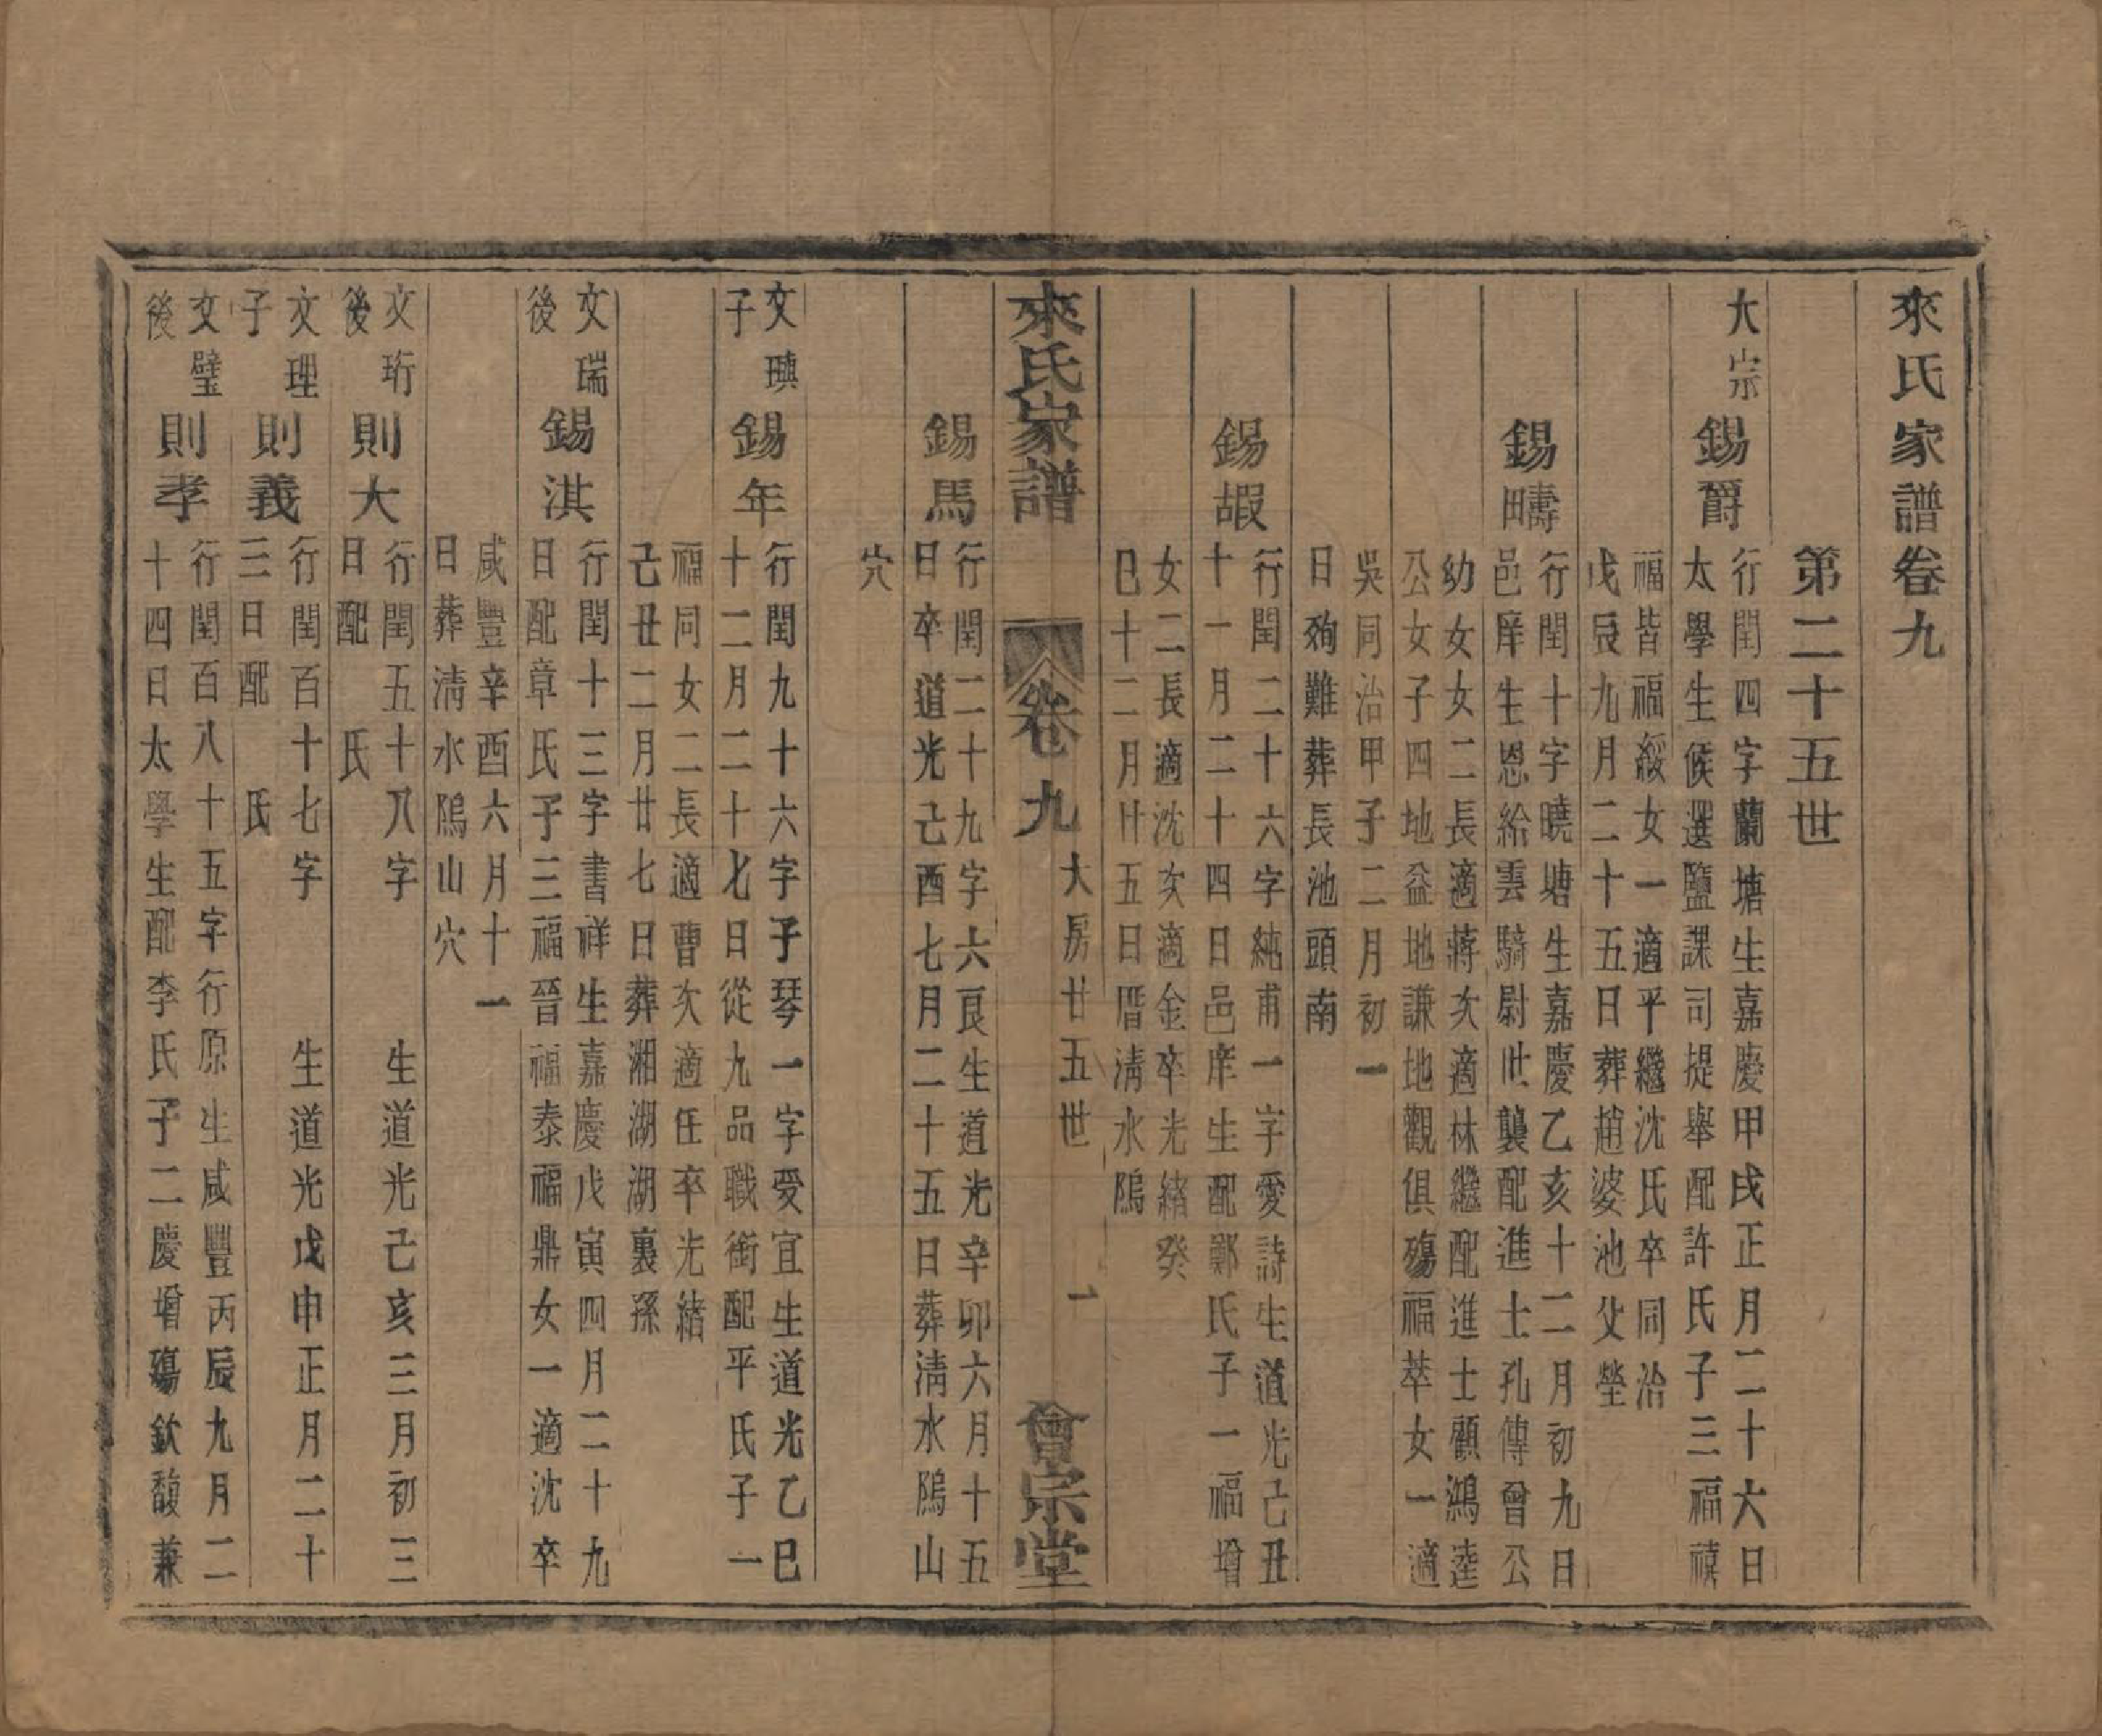 來氏家譜卷九
第二十五世
大宗
錫爵
行閏四字蘭塘生嘉慶甲戌正月二十六日
太學生候選鹽課司提舉配許氏子三福禧
福皆福綏女一適平繼沈氏卒同治
戊辰九月二十五日葬趙婆池父塋
錫疇
行閏十字曉塘生嘉慶乙亥十二月初九日
邑庠生恩給雲騎尉世襲配進士孔傳曾公
幼女女二長適蔣次適林繼配進士顧鴻逵
公女子四地益地謙地觀俱殤福萃女一適
吳同治甲子二月初一
日殉難葬長池頭南
錫嘏
行閏二十六字純甫一字愛詩生道光己丑
十一月二十四日邑庠生配鄭氏子一福增
女二長適沈次適金卒光緒癸
巳十二月廿五日厝淸水隖
來氏家譜
卷九
大房廿五世
一
會宗堂
錫馬
行閏二十九字六良生道光辛卯六月十五
日卒道光己酉七月二十五日葬淸水隖山
穴
文璵
子
錫年
行閏九十六字子琴一字受宜生道光乙巳
十二月二十七日從九品職銜配平氏子一
福同女二長適曹次適任卒光緒
己丑二月廿七日葬湘湖湖裏孫
文瑞
後
錫淇
行閏十三字書祥生嘉慶戊寅四月二十九
日配章氏子三福晉福泰福鼎女一適沈卒
咸豐辛酉六月十一
日葬淸水隖山穴
文珩
後
則大
行閏五十八字 生道光己亥三月初三
日配 氏
文理
子
則義
行閏百十七字 生道光戊申正月二十
三日配 氏
文璧
後
則孝
行閏百八十五字行原生咸豐丙辰九月二
十四日太學生配李氏子二慶增殤欽馥兼